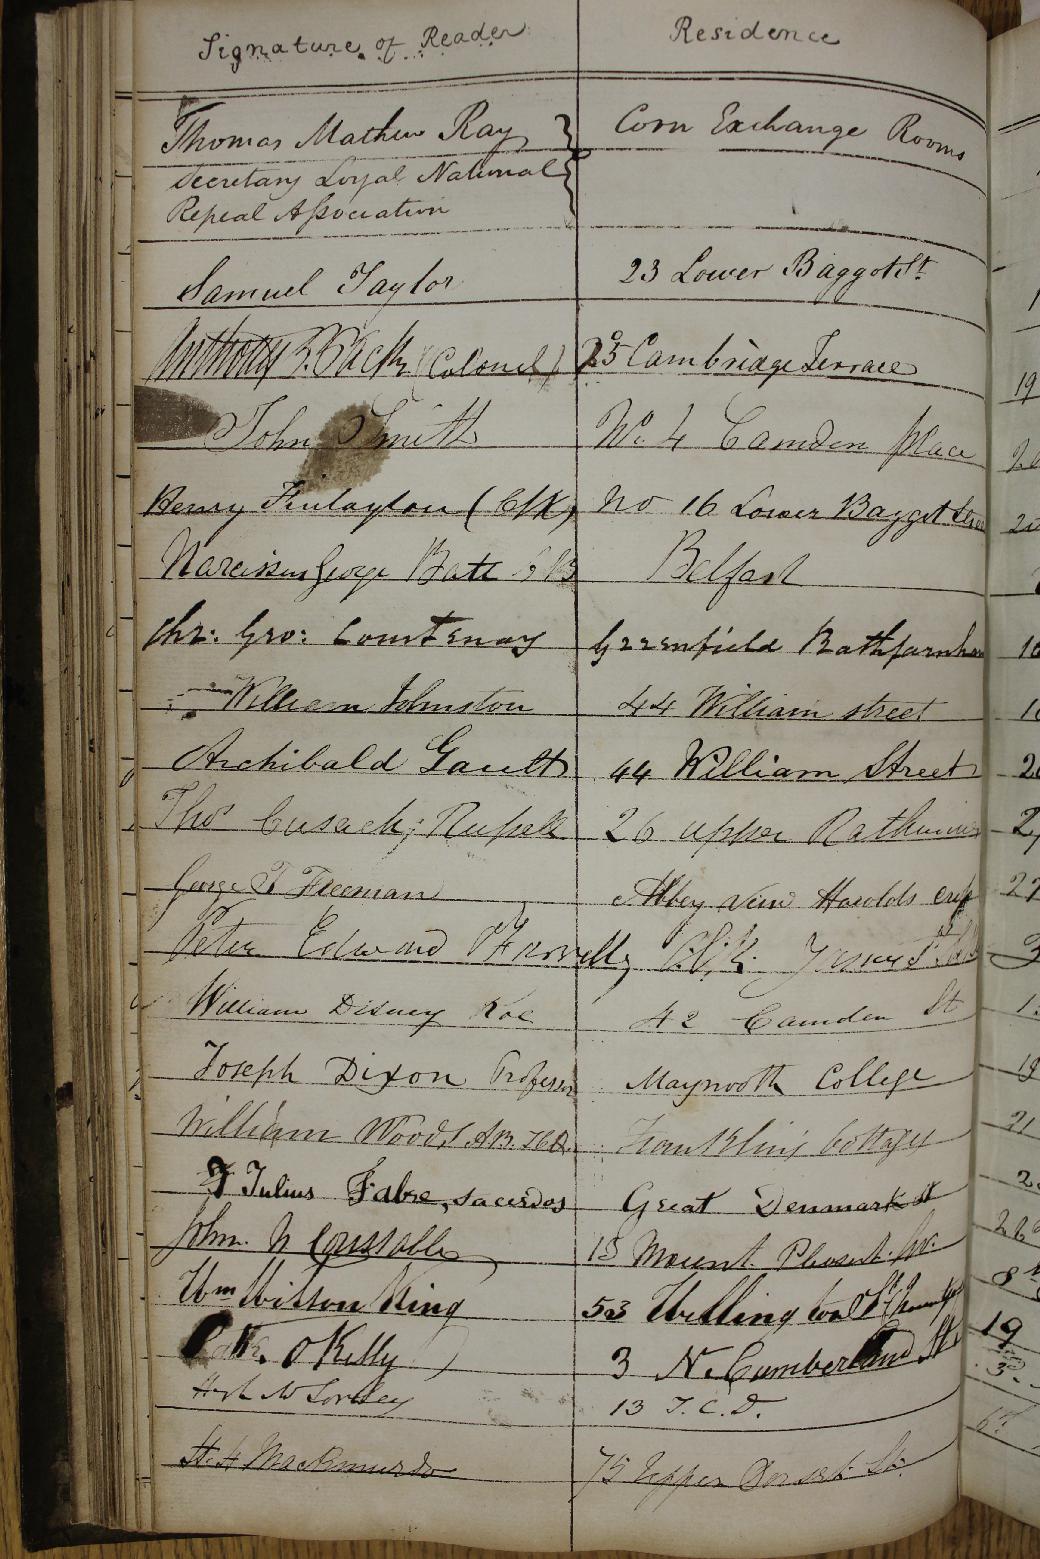 Signature of Reader Residence
Thomas Mathew Ray Corn Exchange Rooms
Secretary Loyal National
Repeal Association
Samuel Taylor 23 Lower Baggot St
(Colonel) 25 Cambridge Terrace
John Smith No 4 Camden place
Henry Finlayson No 16 Lower Baggot
Narcissus George Batt Belfast
Chr: Geo: Courtenay Greenfield Rathfarnham
William Johnston 44 William street
Archibald Gault 44 William Street
Thos Cusack Russell 26 upper Rathmines
George F Freeman Abbey View Harolds
Peter Edward James St
William Disney Roe 42 Camden St
Joseph Dixon Professor Maynooth College
William Woods A.B. Cottages
J Julius Fabre, sacerdos Great Denmark St
John 15 Mount Pleasant
Wm Wilson King 53 Wellington
O'Kelly 3 N. Cumberland St
13 T.C.D.
75 Upper Dorset St.
19
20
16
27
18
21
19